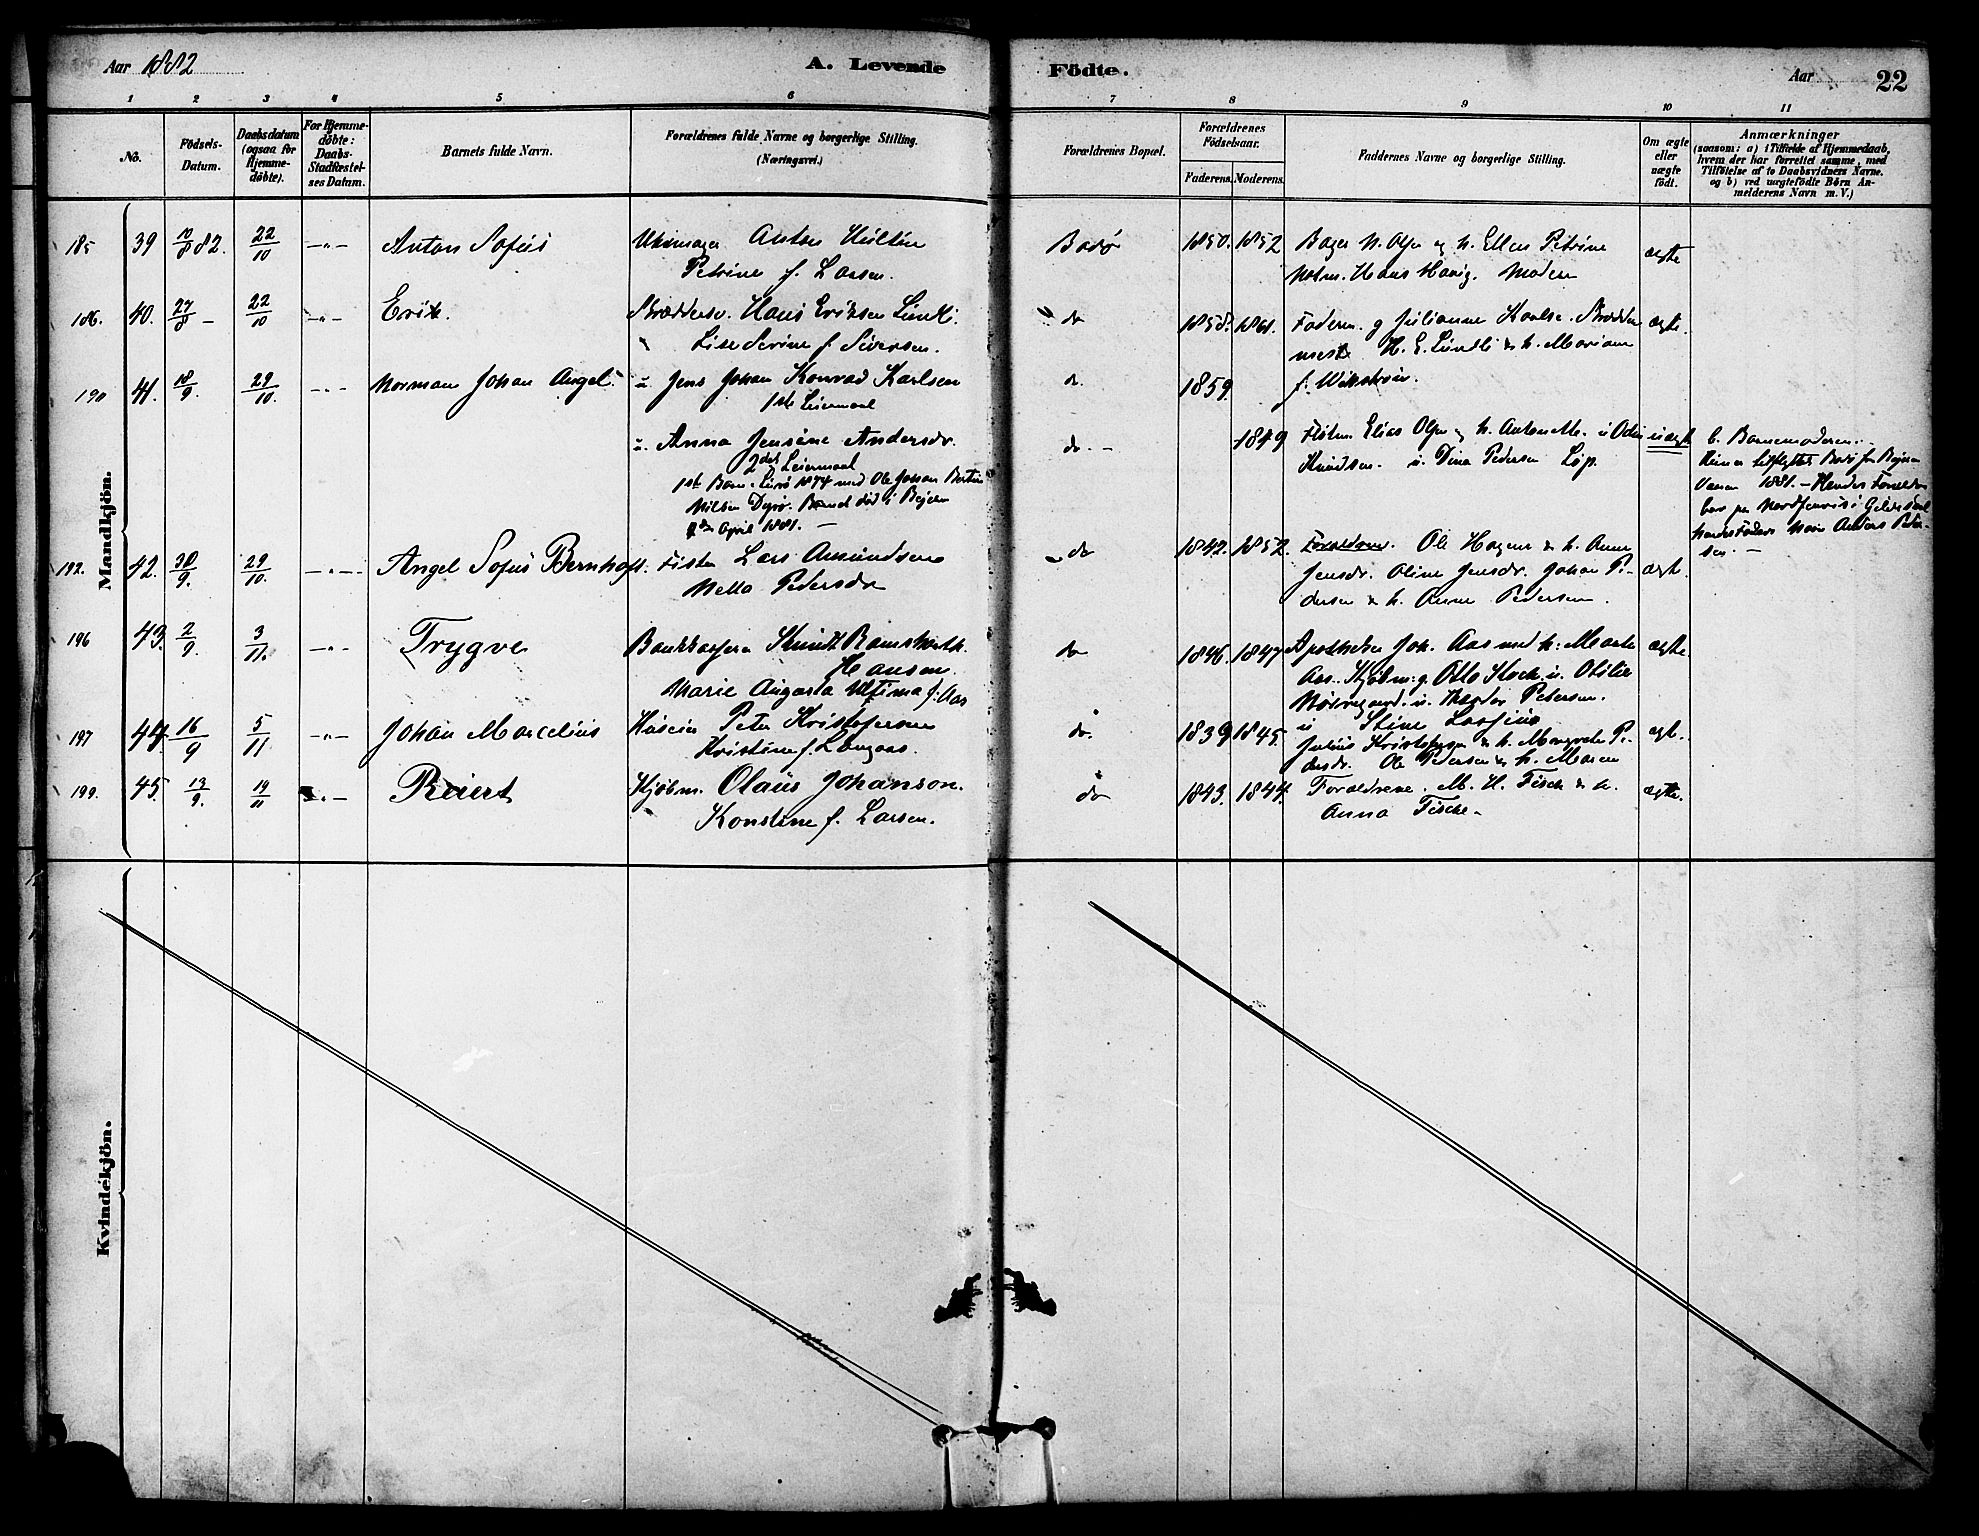 Aar 1882
A. Levende
Födte.
Aar
22
1 2 3 4 5 6 7 8 9 10 11
No.
Födsels-
Datum.
Daabsdatum
(ogsaa for
Hjemme-
döbte).
For Hjemme-
döbte:
Daabs-
Stadfæstel-
ses Datum.
Barnets fulde Navn.
Forældrenes fulde Navne og borgerlige Stilling.
(Næringsvei.)
Forældrenes Bopæl.
Forældrenes
Födselsaar.
Faderens. Moderens.
Faddernes Navne og borgerlige Stilling.
Om ægte
eller
uægte
födt.
Anmærkninger
(saasom: a) i Tilfælde af Hjemmedaab,
hvem der har forrettet samme, med
Tilföielse af to Daabsvidners Navne.
og b) ved uægtefödte Börn An-
melderens Navn m. V.)
Mandkjön.
185 39 10/8 82. 22/10 -"- Anton Sofus Anton
Petrine f. Larsen.
Bodø 1850. 1852 Bager N. Olsen og h. Ellen Petrine
Hans Havig. Moderen
ægte
186. 40. 27/8 - 22/10 -"- Erik. Hans Eriksen Lundli.
Lise Serine f. Siversen.
do 1858. 1861. Faderen. g Julianne Karlsen.
H. E. Lundli & h. Mariane
f.
ægte.
190 41. 18/9. 29/10. -"- Norman Johan Angel. u. Jens Johan Konrad Karlsen
1ste Leiermaal
do. 1859.
u. Anna Jensine Andersdr.
2det Leiermaal
1ste Barn i Lurø 1874 med Ole Johan Bertin
Nilsen Dyrø. Barnet død i Bejern
April 1881. -
do - 1849 Elias Olsen og h. Antonette. u Odin
Knudsen. u. Dina Pedersen Løp.
uægt
b. Barnemoderen.
Hun er tilflyttet Bodø fra Bejern
Vaaren 1881. - Hendes Forældre
bor paa i Gildeskaal
hendes Faders Navn Anders Peder-
sen. -
192. 42. 30/9. 29/10. -"- Angel Sofus Bernhoft. Fisker Lars Amundsen
Nella Pedersdr
do 1842. 1852. Forældrene. Ole Hagen & h. Anne
Jensdr. Oline Jensdr. Johan Pe-
dersen & h. Anne Pedersen.
ægt.
196 43. 2/9. 3/11. -"- Trygve Bankkasserer Knudt
Hansen.
Marie Augusta Ultima f. Aas
do 1846. 1847 Apotheker Joh. Aas med h. Marte
Aas. Kjøbm. g. Otto Koch. u. Otilie
u. Magda Petersen.
u Stine
ægte.
197 44. 16/9 5/11 -"- Johan Marcelius Huseier Peter Kristofersen
Kristine f. Langaas.
do. 1839 1845. Julius Kristofersen & h. Margrete Pe-
dersdr. Ole Pedersen & h. Maren
ægt.
199. 45. 13/9. 19/11 -"- Reiert Kjøbm. Olaus Johanson.
Konstine f. Larsen.
do 1843. 1844. Forældrene. M. H. Fisch & h.
Anna Fische.
ægte.
Kvindekjön.